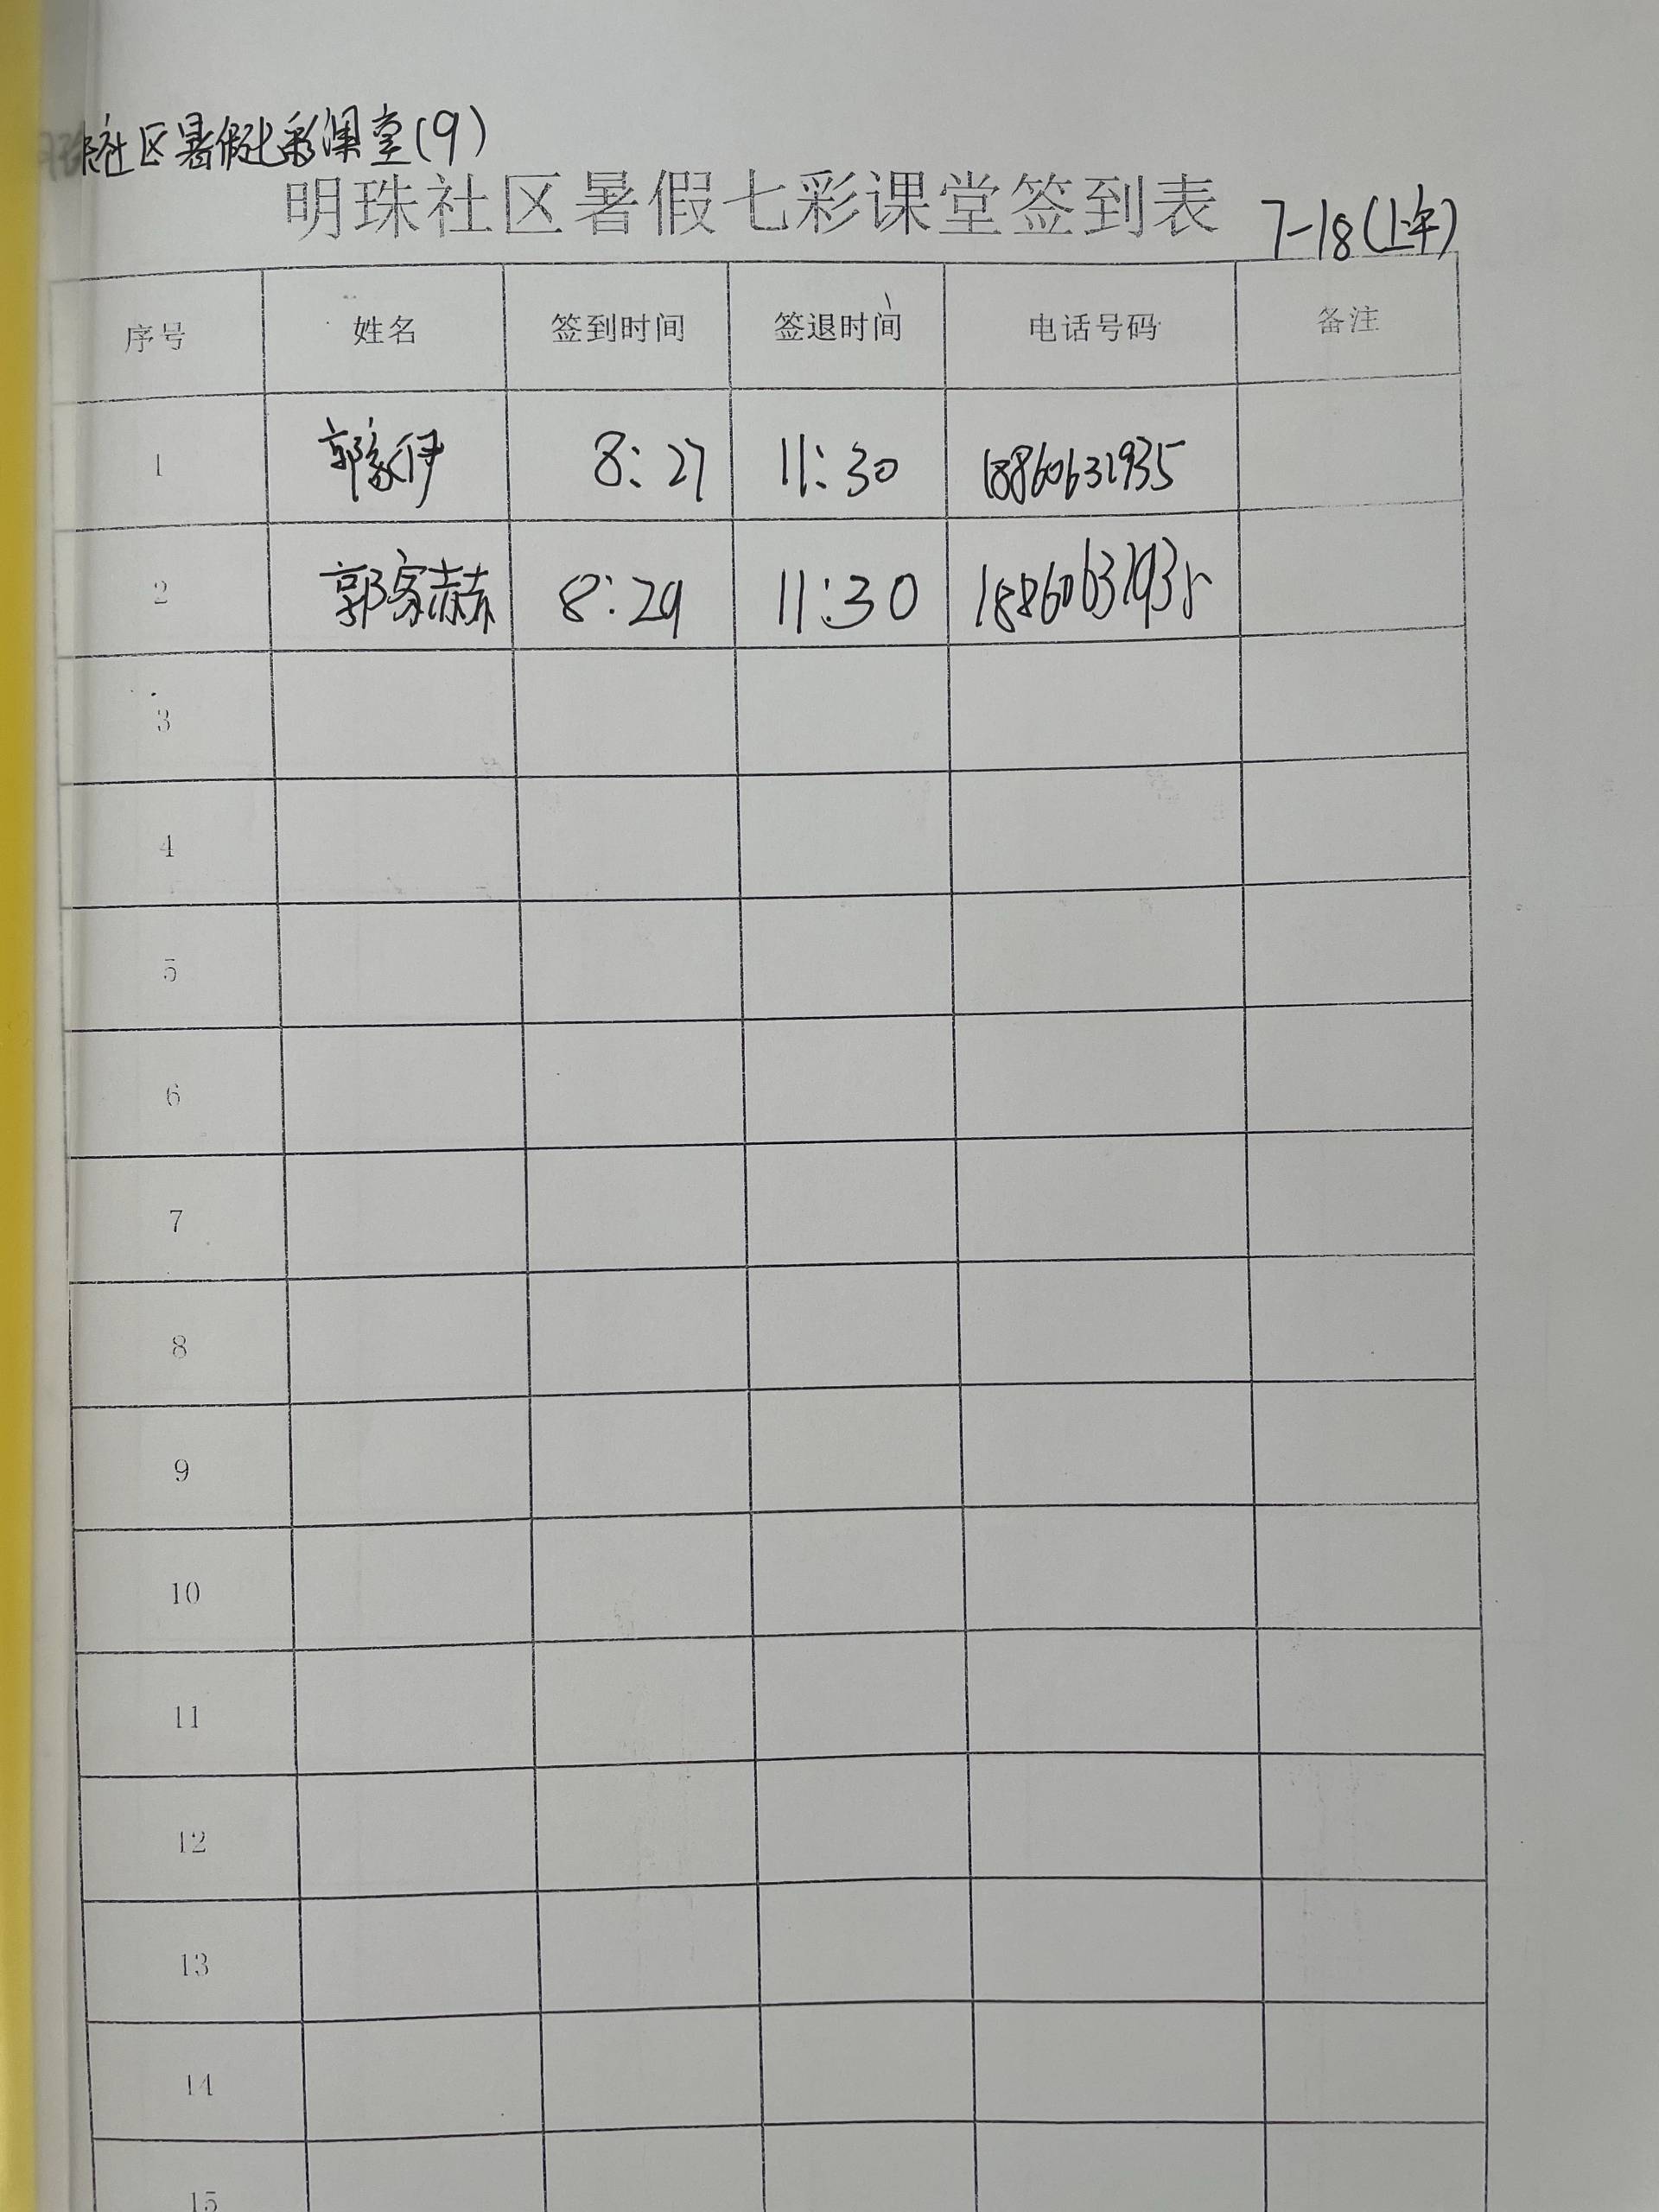 社区暑假七彩课堂(9)
明珠社区暑假七彩课堂签到表 7-18(上午)
序号 姓名 签到时间 签退时间 电话号码 备注
1 郭家伊 8:27 11:30 18860631935
2 郭家赫 8:29 11:30 18860631935
3
4
5
6
7
8
9
10
11
12
13
14
15